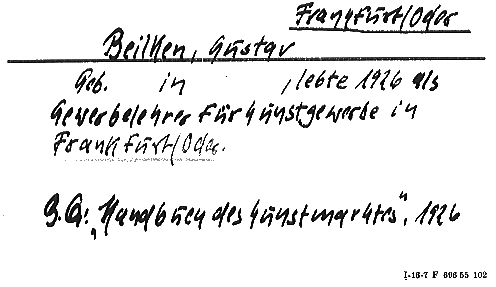 Frankfurt/Oder
Beilken, Gustav
Geb. in , lebte 1926 als
Gewerbelehrer für Kunstgewerbe in
Frankfurt/Oder.
S.Q.: "Handbuch des Kunstmarktes", 1926
I-16-7 F 606 55 102